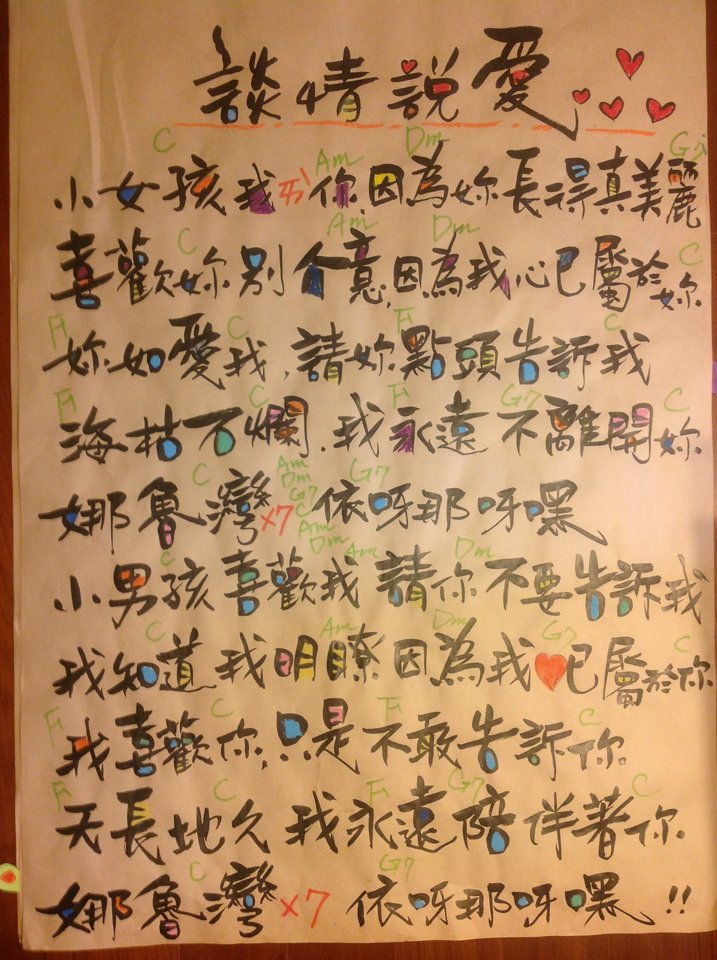 談情說愛
C Am Dm G7
小女孩我ㄞˋ你,因為妳長得真美麗
C Am Dm C
喜歡妳別介意,因為我心已屬於妳
F C F C
妳如愛我,請妳點頭告訴我
F C F G7 C
海枯石爛.我永遠不離開妳
C Am Dm G7 C Am Dm G7
娜魯灣x7 依呀那呀嘿
C Am Dm
小男孩喜歡我請你不要告訴我
C Am Dm G7 C
我知道我明瞭因為我已屬於你
F C F C
我喜歡你,只是不敢告訴你.
F C F G7 C
天長地久我永遠陪伴著你.
C G7
娜魯灣x7 依呀那呀嘿!!